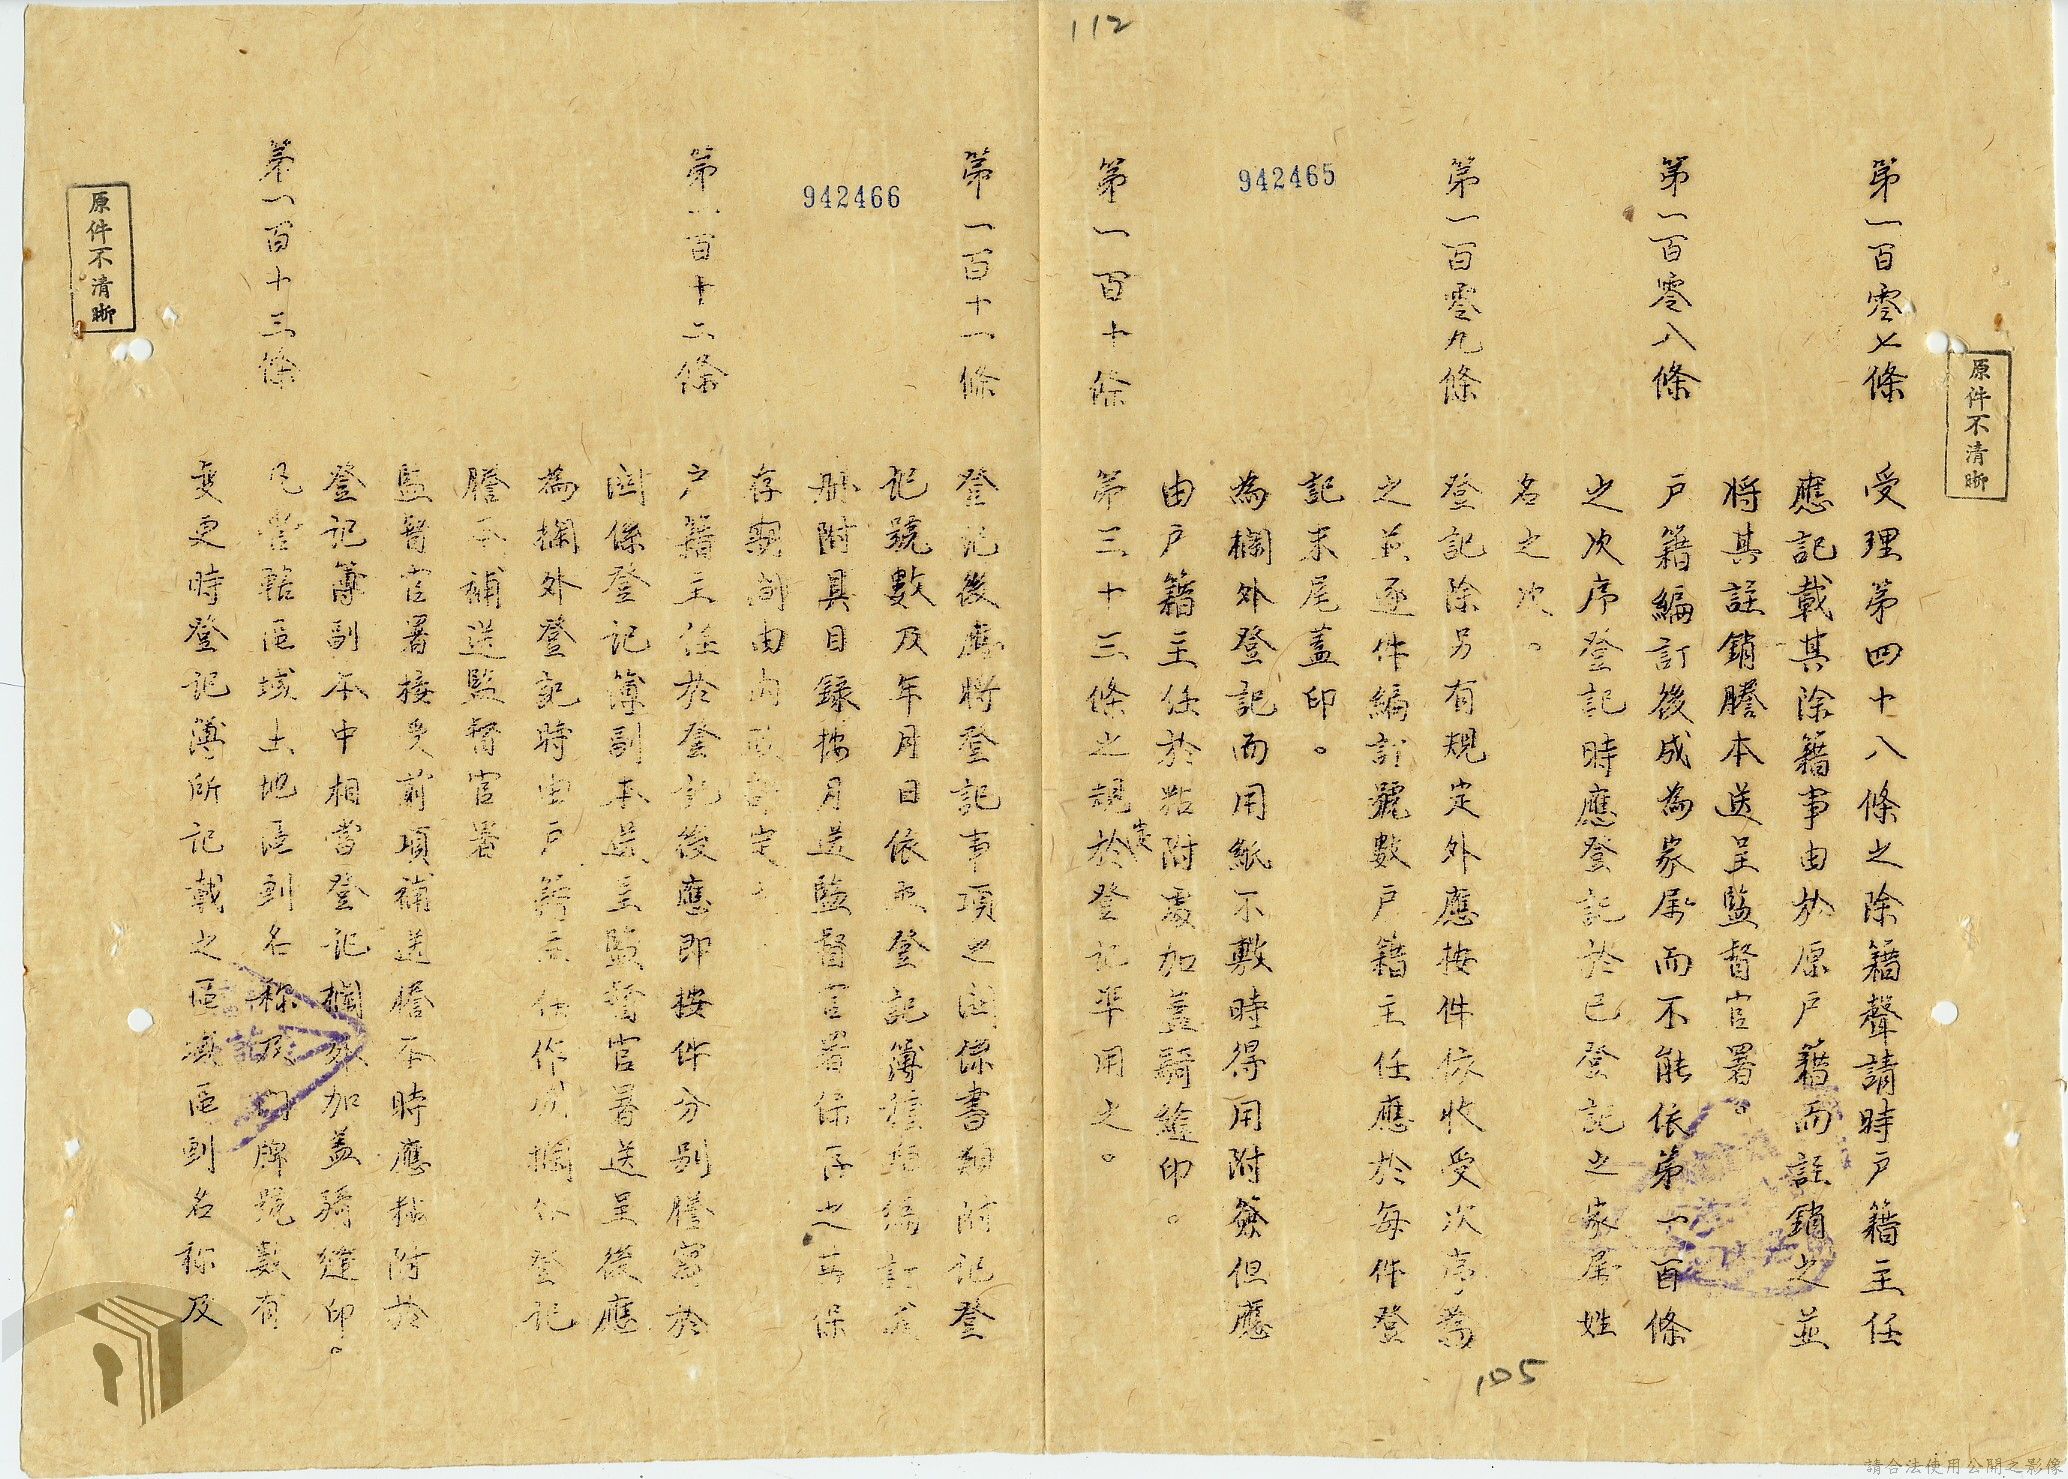 112
942465
942466
原件不清晰
第一百零七條
受理第四十八條之除籍聲請時戶籍主任
應記載其除籍事由於原戶籍而註銷之並
將其註銷謄本送呈監督官署。
第一百零八條
戶籍編訂後成為家屬而不能依第一百條
之次序登記時應登記於已登記之家屬姓
名之次。
第一百零九條
登記除另有規定外應按件依收受次序為
之並逐件編訂號數戶籍主任應於每件登
記末尾蓋印。
為欄外登記而用紙不敷時得用附簽但應
由戶籍主任於粘附處加蓋騎縫印。
第一百十條
第三十三條之規定於登記準用之。
第一百十一條
登記後應將登記事項之関係書類附記登
記號數及年月日依照登記簿種類編訂成
冊附具目錄按月送監督官署保存之其保
存期間由內政部定之
第一百十二條
戶籍主任於登記後應即按件分別謄寫於
関係登記簿副本送呈監督官署送呈後應
為欄外登記時由戶籍主任作成欄外登記
謄本補送監督官署
監督官署接受前項補送謄本時應粘附於
登記簿副本中相當登記欄外加蓋騎縫印。
第一百十三條
凡管轄區域土地區劃名称及門牌號數有
變更時登記簿所記載之區域區劃名称及
原件不清晰
105
請合法使用公開之影像